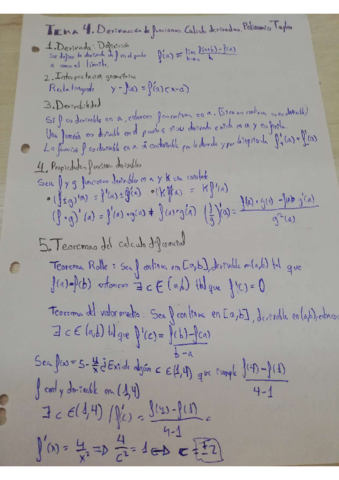 Tema 4. Derivación de funciones. Calculo derivadas. Polinomio Taylor
1. Derivada: Definición
Se define la derivada de f en el punto
a como el límite.
f'(a) = lim h→0 f(a+h)-f(a) / h
2. Interpretación geométrica
Recta tangente y - f(a) = f'(a)(x-a)
3. Derivabilidad
Si f es derivable en a, entonces f es continua en a.
Una función es derivable en el punto a si su derivada existe en a y es finita.
La función f es derivable en a si es derivable por la derecha y por la izquierda
4. Propiedades funciones derivables
Sean f y g funciones derivables en a y K una constante
• (f±g)'(a) = f'(a) ± g'(a) • (Kf)'(a) = Kf'(a)
(f·g)'(a) = f'(a)·g(a) + f(a)·g'(a) (f/g)'(a) = f'(a)·g(a) - f(a)·g'(a) / g²(a)
5. Teoremas del calculo diferencial
Teorema Rolle: Sea f continua en [a,b], derivable en (a,b) tal que
f(a)=f(b) entonces ∃ c ∈ (a,b) tal que f'(c) = 0
Teorema del valor medio: Sea f continua en [a,b], derivable en (a,b), entonces
∃ c ∈ (a,b) tal que f'(c) = f(b) - f(a) / b-a
Sea f(x) = 5 - 4/x ¿Existe algún c ∈ (1,4) que cumple f(4) - f(1) / 4-1
f cont y derivable en (1,4)
∃ c ∈ (1,4) / f'(c) = f(4) - f(1) / 4-1 =
f'(x) = 4/x² => 4/c² = 1 <=> c = ±2